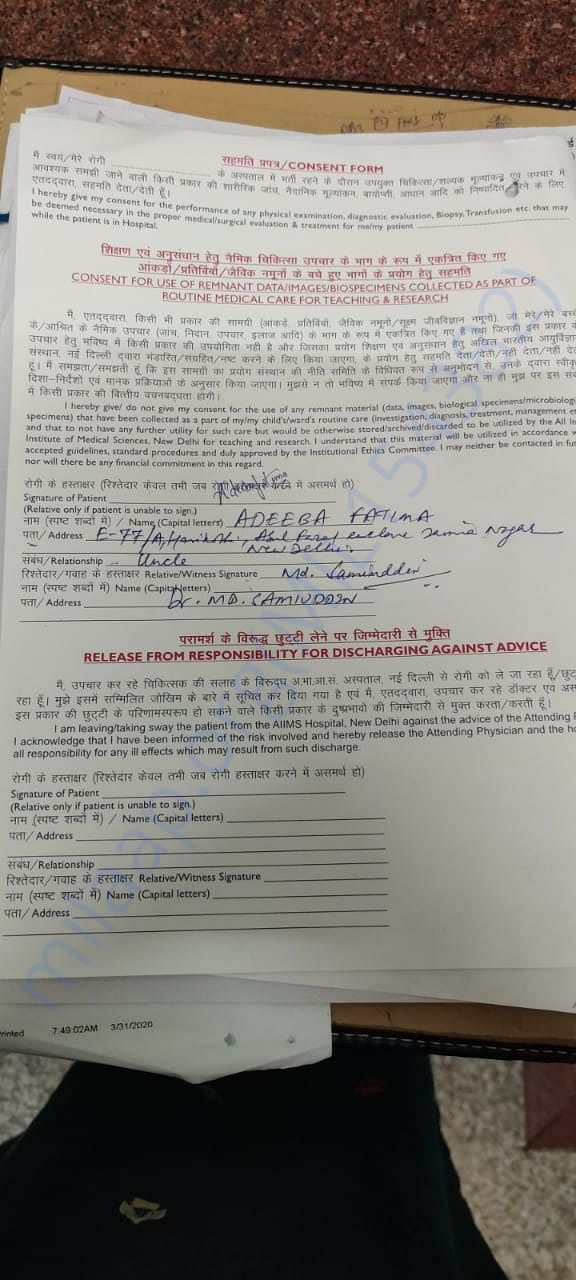 सहमति प्रपत्र/CONSENT FORM
मैं स्वयं/मेरे रोगी ........................ के अस्पताल में भर्ती रहने के दौरान उपयुक्त चिकित्सा/शल्यक मूल्यांकन एवं उपचार में
आवश्यक समझी जाने वाली किसी प्रकार की शारीरिक जांच, नैदानिक मूल्यांकन, बायोप्सी, आधान आदि को निष्पादित करने के लिए
एतद्द्वारा, सहमति देता/देती हूँ।
I hereby give my consent for the performance of any physical examination, diagnostic evaluation, Biopsy, Transfusion etc. that may
be deemed necessary in the proper medical/surgical evaluation & treatment for me/my patient
while the patient is in Hospital.
शिक्षण एवं अनुसंधान हेतु नैमिक चिकित्सा उपचार के भाग के रूप में एकत्रित किए गए
आंकडों/प्रतिबिंवों/जैविक नमूनों के बचे हुए भागों के प्रयोग हेतु सहमति
CONSENT FOR USE OF REMNANT DATA/IMAGES/BIOSPECIMENS COLLECTED AS PART OF
ROUTINE MEDICAL CARE FOR TEACHING & RESEARCH
मैं, एतद्द्वारा, किसी भी प्रकार की सामग्री (आंकडे, प्रतिबिंवों, जैविक नमूनों/सूक्ष्म जीवविज्ञान नमूनों), जो मेरे/मेरे
के/आश्रित के नैमिक उपचार (जांच, निदान, उपचार, इलाज आदि) के भाग के रूप में एकत्रित किए गए हैं तथा जिनकी इस प्रकार
उपचार हेतु भविष्य में किसी प्रकार की उपयोगिता नहीं है और जिसका प्रयोग शिक्षण एवं अनुसंधान हेतु अखिल भारतीय
संस्थान, नई दिल्ली द्वारा भंडारित/संग्रहित/नष्ट करने के लिए किया जाएगा, के प्रयोग हेतु सहमति देता/देती/नहीं देता/नहीं
हूं। मैं समझता/समझती हूं कि इस सामग्री का प्रयोग संस्थान की नीति समिति के विधिवत रूप से अनुमोदन से, उनके द्वारा
दिशा-निर्देशों एवं मानक प्रक्रियाओं के अनुसार किया जाएगा। मुझसे न तो भविष्य में संपर्क किया जाएगा और ना ही मुझ पर इस
में किसी प्रकार की वित्तीय वचनबद्धता होगी।
I hereby give/ do not give my consent for the use of any remnant material (data, images, biological specimens/microbiologic
specimens) that have been collected as a part of my/my child's/ward's routine care (investigation, diagnosis, treatment, management
and that to not have any further utility for such care but would be otherwise stored/archived/discarded to be utilized by the All
Institute of Medical Sciences, New Delhi for teaching and research. I understand that this material will be utilized in accordance
accepted guidelines, standard procedures and duly approved by the Institutional Ethics Committee. I may neither be contacted in
nor will there be any financial commitment in this regard.
रोगी के हस्ताक्षर (रिश्तेदार केवल तभी जब रोगी हस्ताक्षर करने में असमर्थ हो)
Signature of Patient
(Relative only if patient is unable to sign.)
नाम (स्पष्ट शब्दों में) / Name (Capital letters) ADEEBA FATIMA
पता/Address E-77/A, Abul Fazal enclave Jamia Nagar
New Delhi
संबंध/Relationship Uncle
रिश्तेदार/गवाह के हस्ताक्षर Relative/Witness Signature Md. Samiuddin
नाम (स्पष्ट शब्दों में) Name (Capital letters)
पता/ Address Dr. MD. SAMIUDDIN
परामर्श के विरुद्ध छुट्टी लेने पर जिम्मेदारी से मुक्ति
RELEASE FROM RESPONSIBILITY FOR DISCHARGING AGAINST ADVICE
मैं, उपचार कर रहे चिकित्सक की सलाह के विरुद्ध अ.भा.आ.सं. अस्पताल, नई दिल्ली से रोगी को ले जा रहा हूँ/
रहा हूँ। मुझे इसमें सम्मिलित जोखिम के बारे में सूचित कर दिया गया है एवं मैं, एतद्द्वारा, उपचार कर रहे डॉक्टर एवं
इस प्रकार की छुट्टी के परिणामस्वरूप हो सकने वाले किसी प्रकार के दुष्प्रभावों की जिम्मेदारी से मुक्त करता/करती हूँ।
I am leaving/taking sway the patient from the AIIMS Hospital, New Delhi against the advice of the Attending
I acknowledge that I have been informed of the risk involved and hereby release the Attending Physician and the
all responsibility for any ill effects which may result from such discharge.
रोगी के हस्ताक्षर (रिश्तेदार केवल तभी जब रोगी हस्ताक्षर करने में असमर्थ हो)
Signature of Patient
(Relative only if patient is unable to sign.)
नाम (स्पष्ट शब्दों में) / Name (Capital letters)
पता/ Address
संबंध/Relationship
रिश्तेदार/गवाह के हस्ताक्षर Relative/Witness Signature
नाम (स्पष्ट शब्दों में) Name (Capital letters)
पता/ Address
Printed 7:49:02AM 3/31/2020